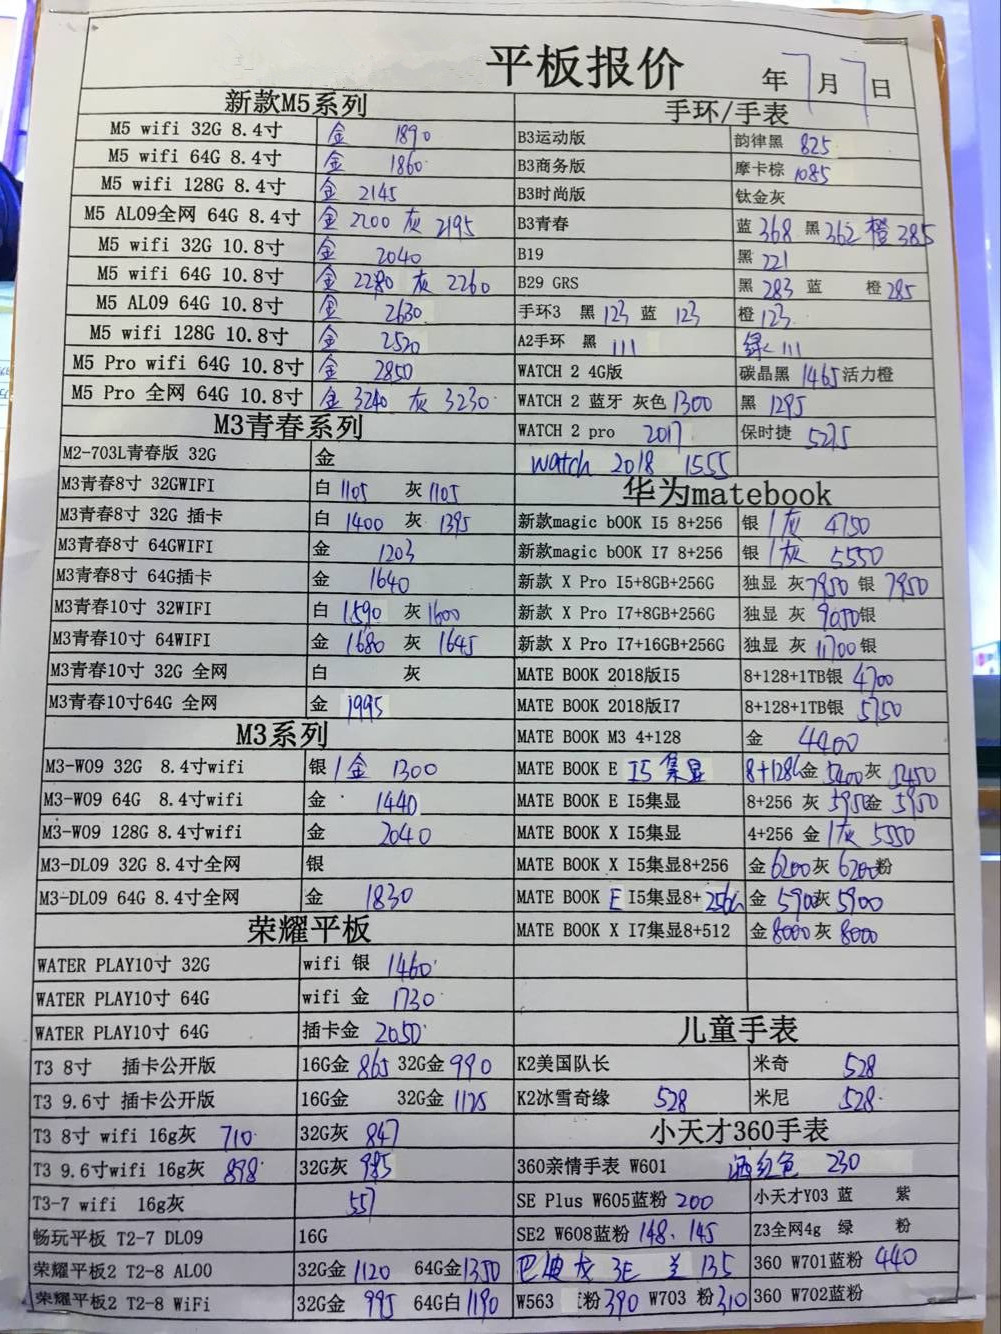 平板报价 年7月7日
新款M5系列
M5 wifi 32G 8.4寸 金 1890
M5 wifi 64G 8.4寸 金 1860
M5 wifi 128G 8.4寸 金 2145
M5 AL09全网 64G 8.4寸 金 2200 灰 2195
M5 wifi 32G 10.8寸 金 2040
M5 wifi 64G 10.8寸 金 2280 灰 2260
M5 AL09 64G 10.8寸 金 2630
M5 wifi 128G 10.8寸 金 2520
M5 Pro wifi 64G 10.8寸 金 2850
M5 Pro 全网 64G 10.8寸 金 3240 灰 3230
M3青春系列
M2-703L青春版 32G 金
M3青春8寸 32GWIFI 白 1105 灰 1105
M3青春8寸 32G 插卡 白 1400 灰 1395
M3青春8寸 64GWIFI 金 1203
M3青春8寸 64G插卡 金 1640
M3青春10寸 32WIFI 白 1590 灰 1600
M3青春10寸 64WIFI 金 1680 灰 1645
M3青春10寸 32G 全网 白 灰
M3青春10寸64G 全网 金 1995
M3系列
M3-W09 32G 8.4寸wifi 银 / 金 1300
M3-W09 64G 8.4寸wifi 金 1440
M3-W09 128G 8.4寸wifi 金 2040
M3-DL09 32G 8.4寸全网 银
M3-DL09 64G 8.4寸全网 金 1830
荣耀平板
WATER PLAY10寸 32G wifi 银 1460
WATER PLAY10寸 64G wifi 金 1730
WATER PLAY10寸 64G 插卡金 2050
T3 8寸 插卡公开版 16G金 865 32G金 990
T3 9.6寸 插卡公开版 16G金 32G金 1125
T3 8寸 wifi 16g灰 710 32G灰 847
T3 9.6寸wifi 16g灰 898 32G灰 985
T3-7 wifi 16g灰 557
畅玩平板 T2-7 DL09 16G
荣耀平板2 T2-8 AL00 32G金 1120 64G金 1350
荣耀平板2 T2-8 WiFi 32G金 995 64G白 1190
手环/手表
B3运动版 韵律黑 825
B3商务版 摩卡棕 1085
B3时尚版 钛金灰
B3青春 蓝 368 黑 362 橙 385
B19 黑 221
B29 GRS 黑 283 蓝 橙 285
手环3 黑 123 蓝 123 橙 123
A2手环 黑 111 绿 111
WATCH 2 4G版 碳晶黑 1465 活力橙
WATCH 2 蓝牙 灰色 1300 黑 1295
WATCH 2 pro 2017 保时捷 5275
watch 2018 1555
华为matebook
新款magic bOOK I5 8+256 银 / 灰 4750
新款magic bOOK I7 8+256 银 / 灰 5550
新款 X Pro I5+8GB+256G 独显 灰 7950 银 7950
新款 X Pro I7+8GB+256G 独显 灰 9050 银
新款 X Pro I7+16GB+256G 独显 灰 11700 银
MATE BOOK 2018版I5 8+128+1TB银 4700
MATE BOOK 2018版I7 8+128+1TB银 5750
MATE BOOK M3 4+128 金 4400
MATE BOOK E I5 集显 8+128G 金 5400 灰 5450
MATE BOOK E I5集显 8+256 灰 5950 金 5950
MATE BOOK X I5集显 4+256 金 / 灰 5550
MATE BOOK X I5集显8+256 金 6200 灰 6200 粉
MATE BOOK E I5集显8+256G 金 5900 灰 5900
MATE BOOK X I7集显8+512 金 8000 灰 8000
儿童手表
K2美国队长 米奇 528
K2冰雪奇缘 528 米尼 528
小天才360手表
360亲情手表 W601 酒红色 230
SE Plus W605蓝粉 200 小天才Y03 蓝 紫
SE2 W608蓝粉 148、145 Z3全网4g 绿 粉
巴迪龙 3E 兰 135 360 W701蓝粉 440
W563 粉 390 W703 粉 310 360 W702蓝粉